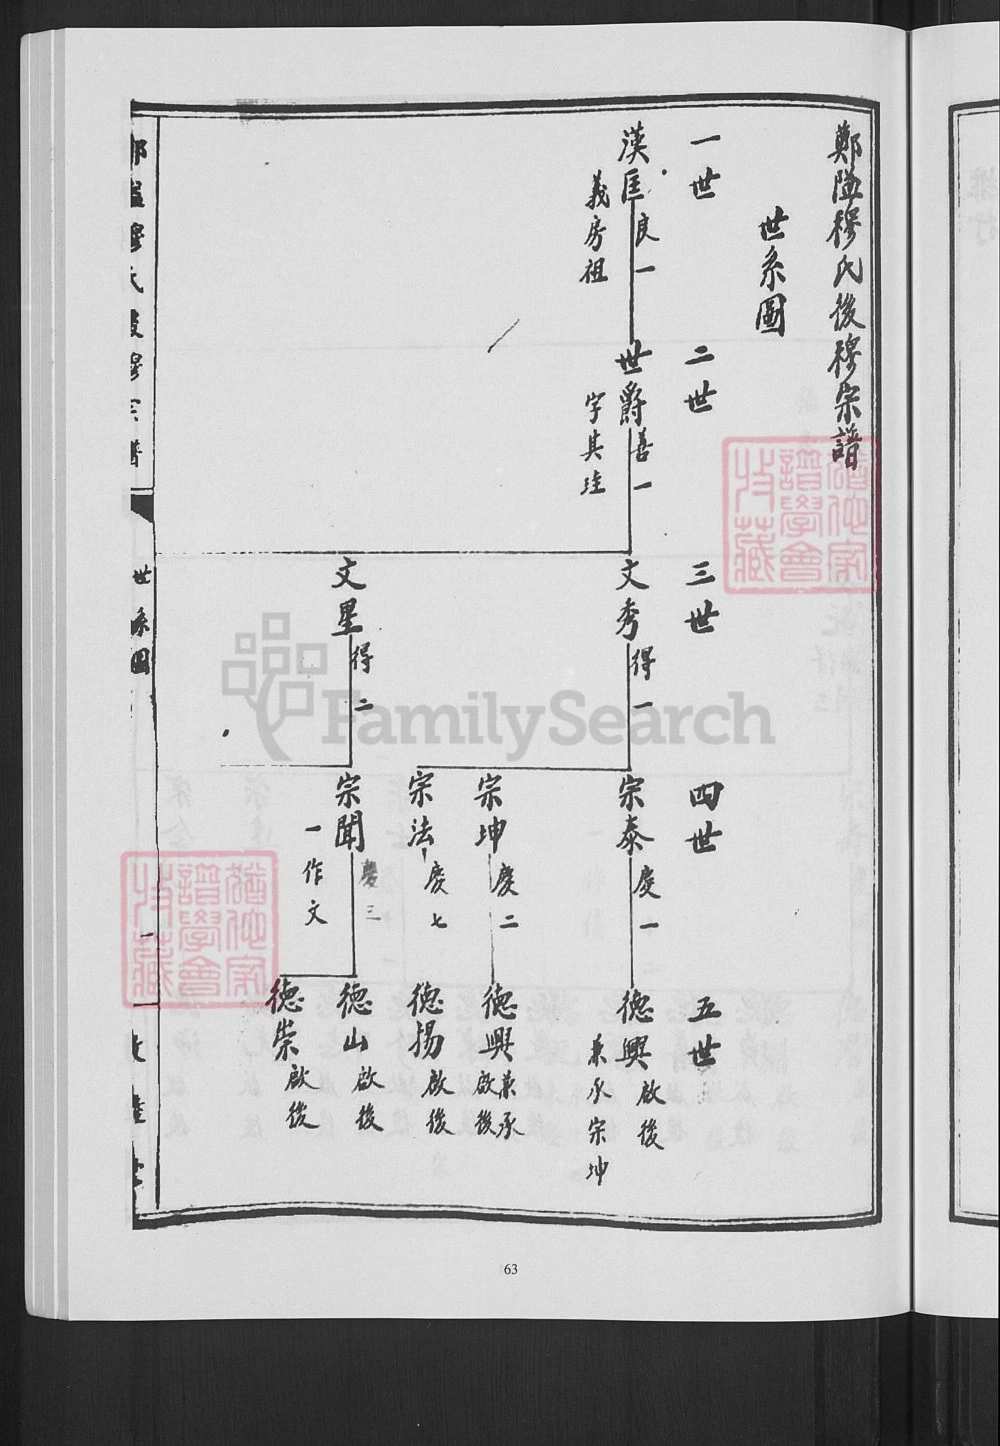 鄭隘穆氏後穆宗譜
世系圖
一世
漢匡
良一
義房祖
二世
世爵
善一
字其珪
三世
文秀
得一
文星
得二
四世
宗泰
慶一
宗坤
慶二
宗法
慶七
宗聞
慶三
一作文
五世
德興
啟後
兼承宗坤
德興
兼承
啟後
德揚
啟後
德山
啟後
德崇
啟後
世系圖
一
猶他家
譜學會
收藏
猶他家
譜學會
收藏
FamilySearch
63